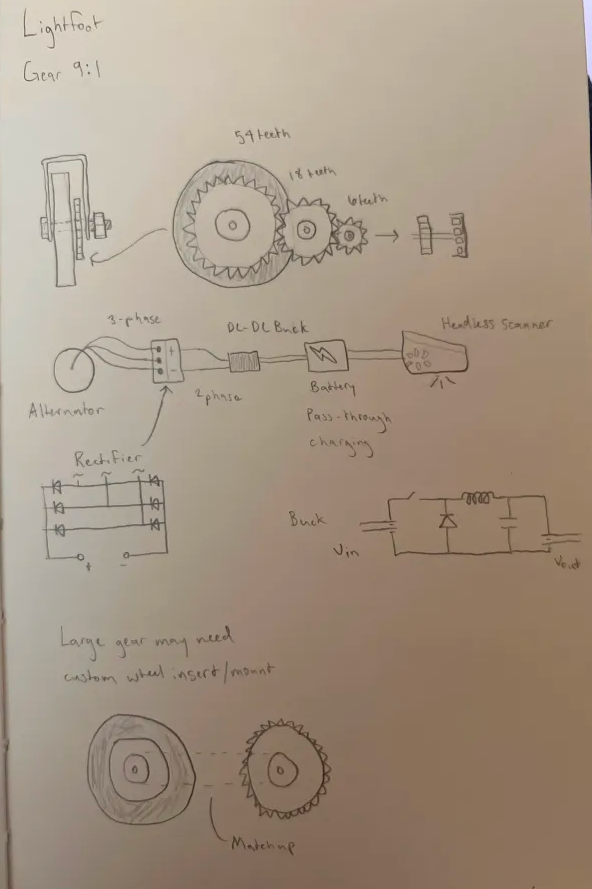 Lightfoot
Gear 9:1
54 teeth
18 teeth
6 teeth
3-phase
DC-DC Buck
Headless Scanner
+
-
Alternator
2 phase
Battery
Pass-through
charging
Rectifier
~ ~ ~
Buck
Vin
Vout
+ -
Large gear may need
custom wheel insert/mount
Matchup